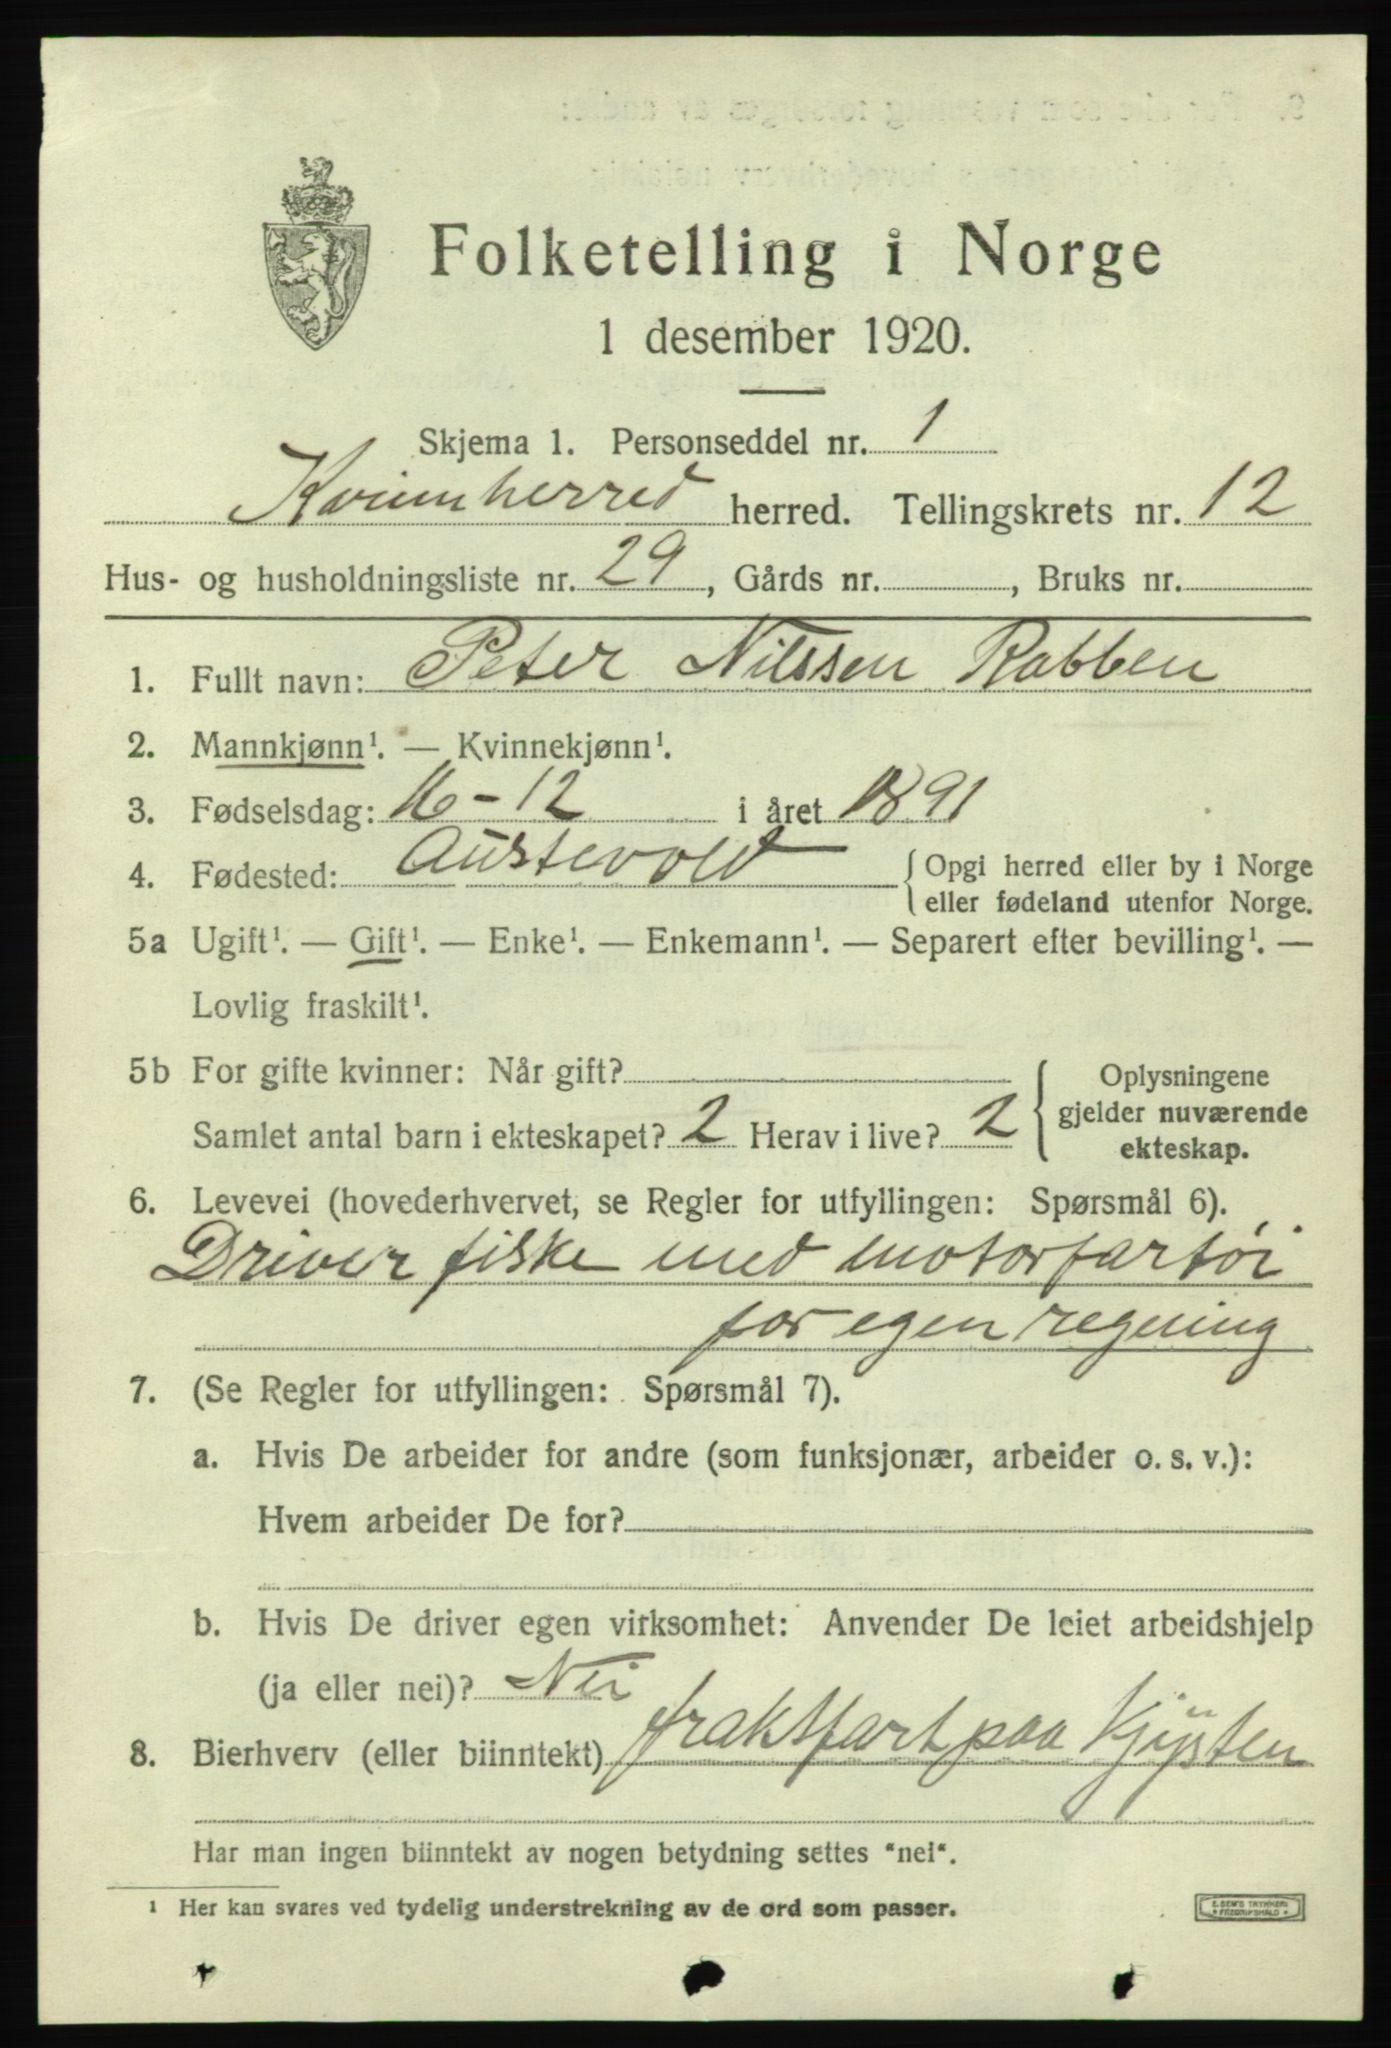 Folketelling i Norge
1 desember 1920.
Skjema 1. Personseddel nr. 1
Kvinnherred herred. Tellingskrets nr. 12
Hus- og husholdningsliste nr. 29, Gårds nr. , Bruks nr.
1. Fullt navn: Peter Nilssen Rabben
2. Mannkjønn¹. — Kvinnekjønn¹.
3. Fødselsdag: 16-12 i året 1891
4. Fødested: Austevold { Opgi herred eller by i Norge
eller fødeland utenfor Norge.
5a Ugift¹. — Gift¹. — Enke¹. — Enkemann¹. — Separert efter bevilling¹. —
Lovlig fraskilt¹.
5b For gifte kvinner: Når gift?
Samlet antal barn i ekteskapet? 2 Herav i live? 2
{ Oplysningene
gjelder nuværende
ekteskap.
6. Levevei (hovederhvervet, se Regler for utfyllingen: Spørsmål 6).
Driver fiske med motorfartöi
for egen regning
7. (Se Regler for utfyllingen: Spørsmål 7).
a. Hvis De arbeider for andre (som funksjonær, arbeider o. s. v.):
Hvem arbeider De for?
b. Hvis De driver egen virksomhet: Anvender De leiet arbeidshjelp
(ja eller nei)? Nei
8. Bierhverv (eller biinntekt) fraktfart paa Kjysten
Har man ingen biinntekt av nogen betydning settes "nei".
¹ Her kan svares ved tydelig understrekning av de ord som passer.